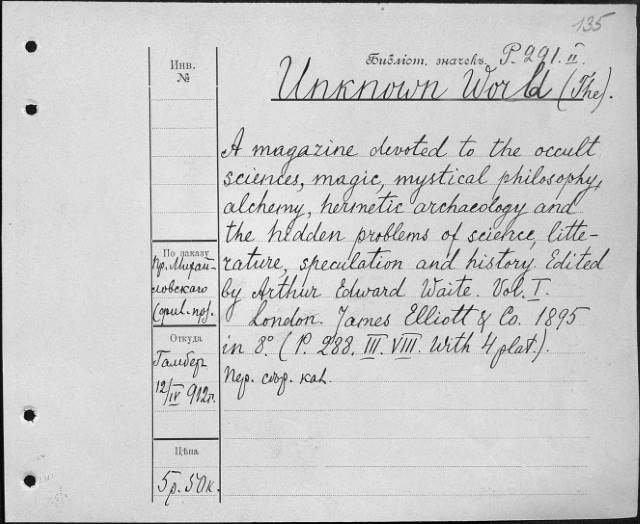 135
Инв.
№
Библіот. значекъ P. 291. II.
Unknown World (The).
A magazine devoted to the occult
sciences, magic, mystical philosophy,
alchemy, hermetic archaeology and
the hidden problems of science, litte-
rature, speculation and history. Edited
by Arthur Edward Waite. Vol. I.
London. James Elliott & Co. 1895
in 8°. (P. 288. III. VIII. With 4 plat.).
По заказу
Пр. Михай-
ловскаго
Откуда
12/IV 912г.
Цѣна
5р. 50к.